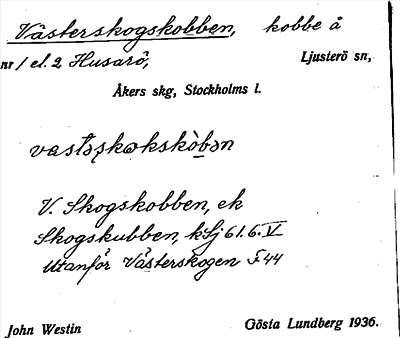 Västerskogskobben, kobbe å
nr 1 el. 2 Husarö, Ljusterö sn,
Åkers skg, Stockholms l.
vastəṣkɷkskòbən
V. Skogskobben, ek
Skogskubben, kSj 61.6.V
Utanför Västerskogen F 44
John Westin Gösta Lundberg 1936.